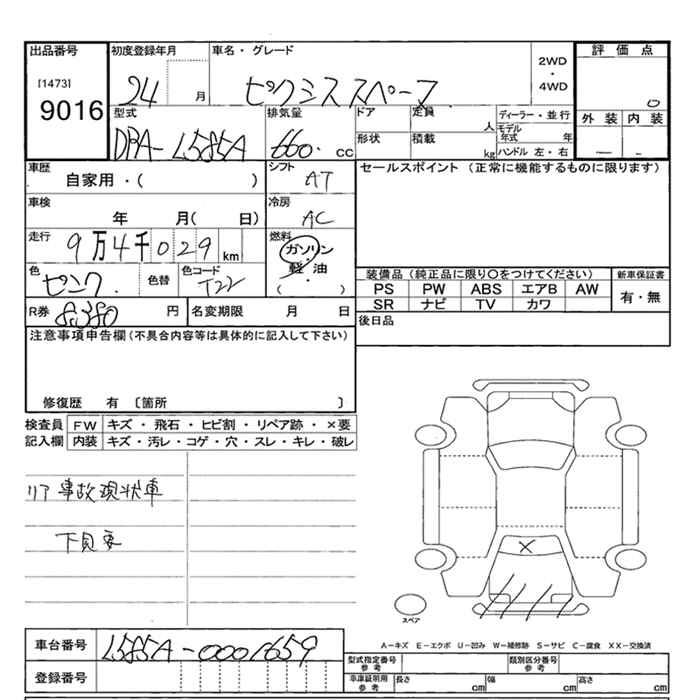 出品番号 初度登録年月 車名・グレード 評価点
[1473]
9016
24 月 ピクシススペース 2WD・4WD 0
型式 排気量 ドア 定員 人 ディーラー・並行 外装 内装
DBA-L585A 660. CC 形状 積載 kg モデル年式 年
ハンドル 左・右
車歴 シフト セールスポイント (正常に機能するものに限ります)
自家用・( ) AT
車検 冷房
年 月( 日) AC
走行 燃料
9万4千029km ガソリン・軽油
( )
色 色替 色コード 装備品(純正品に限り〇をつけてください) 新車保証書
ピンク T22 PS PW ABS エアB AW 有・無
SR ナビ TV カワ
R券 8,380 円 名変期限 月 日 後日品
注意事項申告欄(不具合内容等は具体的に記入して下さい)
修復歴 有 〔箇所 〕
検査員 FW キズ・飛石・ヒビ割・リペア跡・×要
記入欄 内装 キズ・汚レ・コゲ・穴・スレ・キレ・破レ
リア事故現状車
下見要
スペア
車台番号 L585A-0001659 A-キズ E-エクボ U-凹み W-補修跡 S-サビ C-腐食 XX-交換済
型式指定番号 参考 類別区分番号 参考
登録番号 車庫証明用 参考 長さ cm 幅 cm 高さ cm